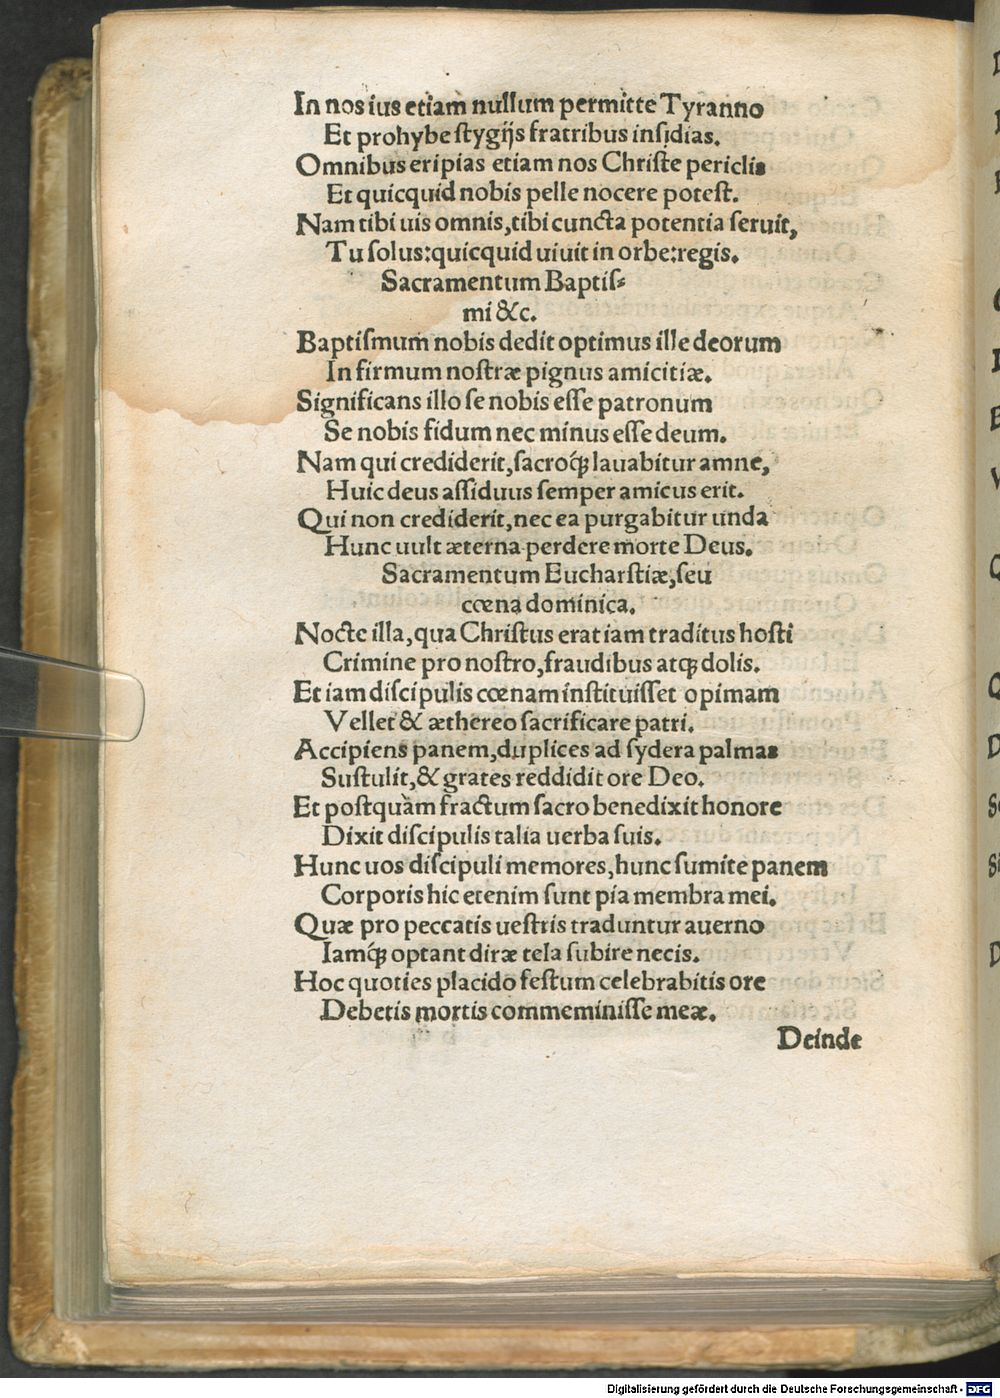 In nos ius etiam nullum permitte Tyranno
Et prohybe ſtygijs fratribus inſidias.
Omnibus eripias etiam nos Chriſte periclis
Et quicquid nobis pelle nocere poteſt.
Nam tibi uis omnis, tibi cuncta potentia ſeruit,
Tu ſolus: quicquid uiuit in orbe: regis.
Sacramentum Baptiſ⸗
mi &c.
Baptiſmum nobis dedit optimus ille deorum
In firmum noſtræ pignus amicitiæ.
Significans illo ſe nobis eſſe patronum
Se nobis fidum nec minus eſſe deum.
Nam qui crediderit, ſacroq́ꝫ lauabitur amne,
Huic deus aſſiduus ſemper amicus erit.
Qui non crediderit, nec ea purgabitur unda
Hunc uult æterna perdere morte Deus.
Sacramentum Euchariſtiæ, ſeu
cœna dominica.
Nocte illa, qua Chriſtus erat iam traditus hoſti
Crimine pro noſtro, fraudibus atqꝫ dolis.
Et iam diſcipulis cœnam inſtituiſſet opimam
Vellet & æthereo ſacrificare patri.
Accipiens panem, duplices ad ſydera palmas
Suſtulit, & grates reddidit ore Deo.
Et poſtquàm fractum ſacro benedixit honore
Dixit diſcipulis talia uerba ſuis.
Hunc uos diſcipuli memores, hunc ſumite panem
Corporis hic etenim ſunt pia membra mei.
Quæ pro peccatis ueſtris traduntur auerno
Iamq́ꝫ optant diræ tela ſubire necis.
Hoc quoties placido feſtum celebrabitis ore
Debetis mortis commeminiſſe meæ.
Deinde
Digitalisierung gefördert durch die Deutsche Forschungsgemeinschaft - DFG